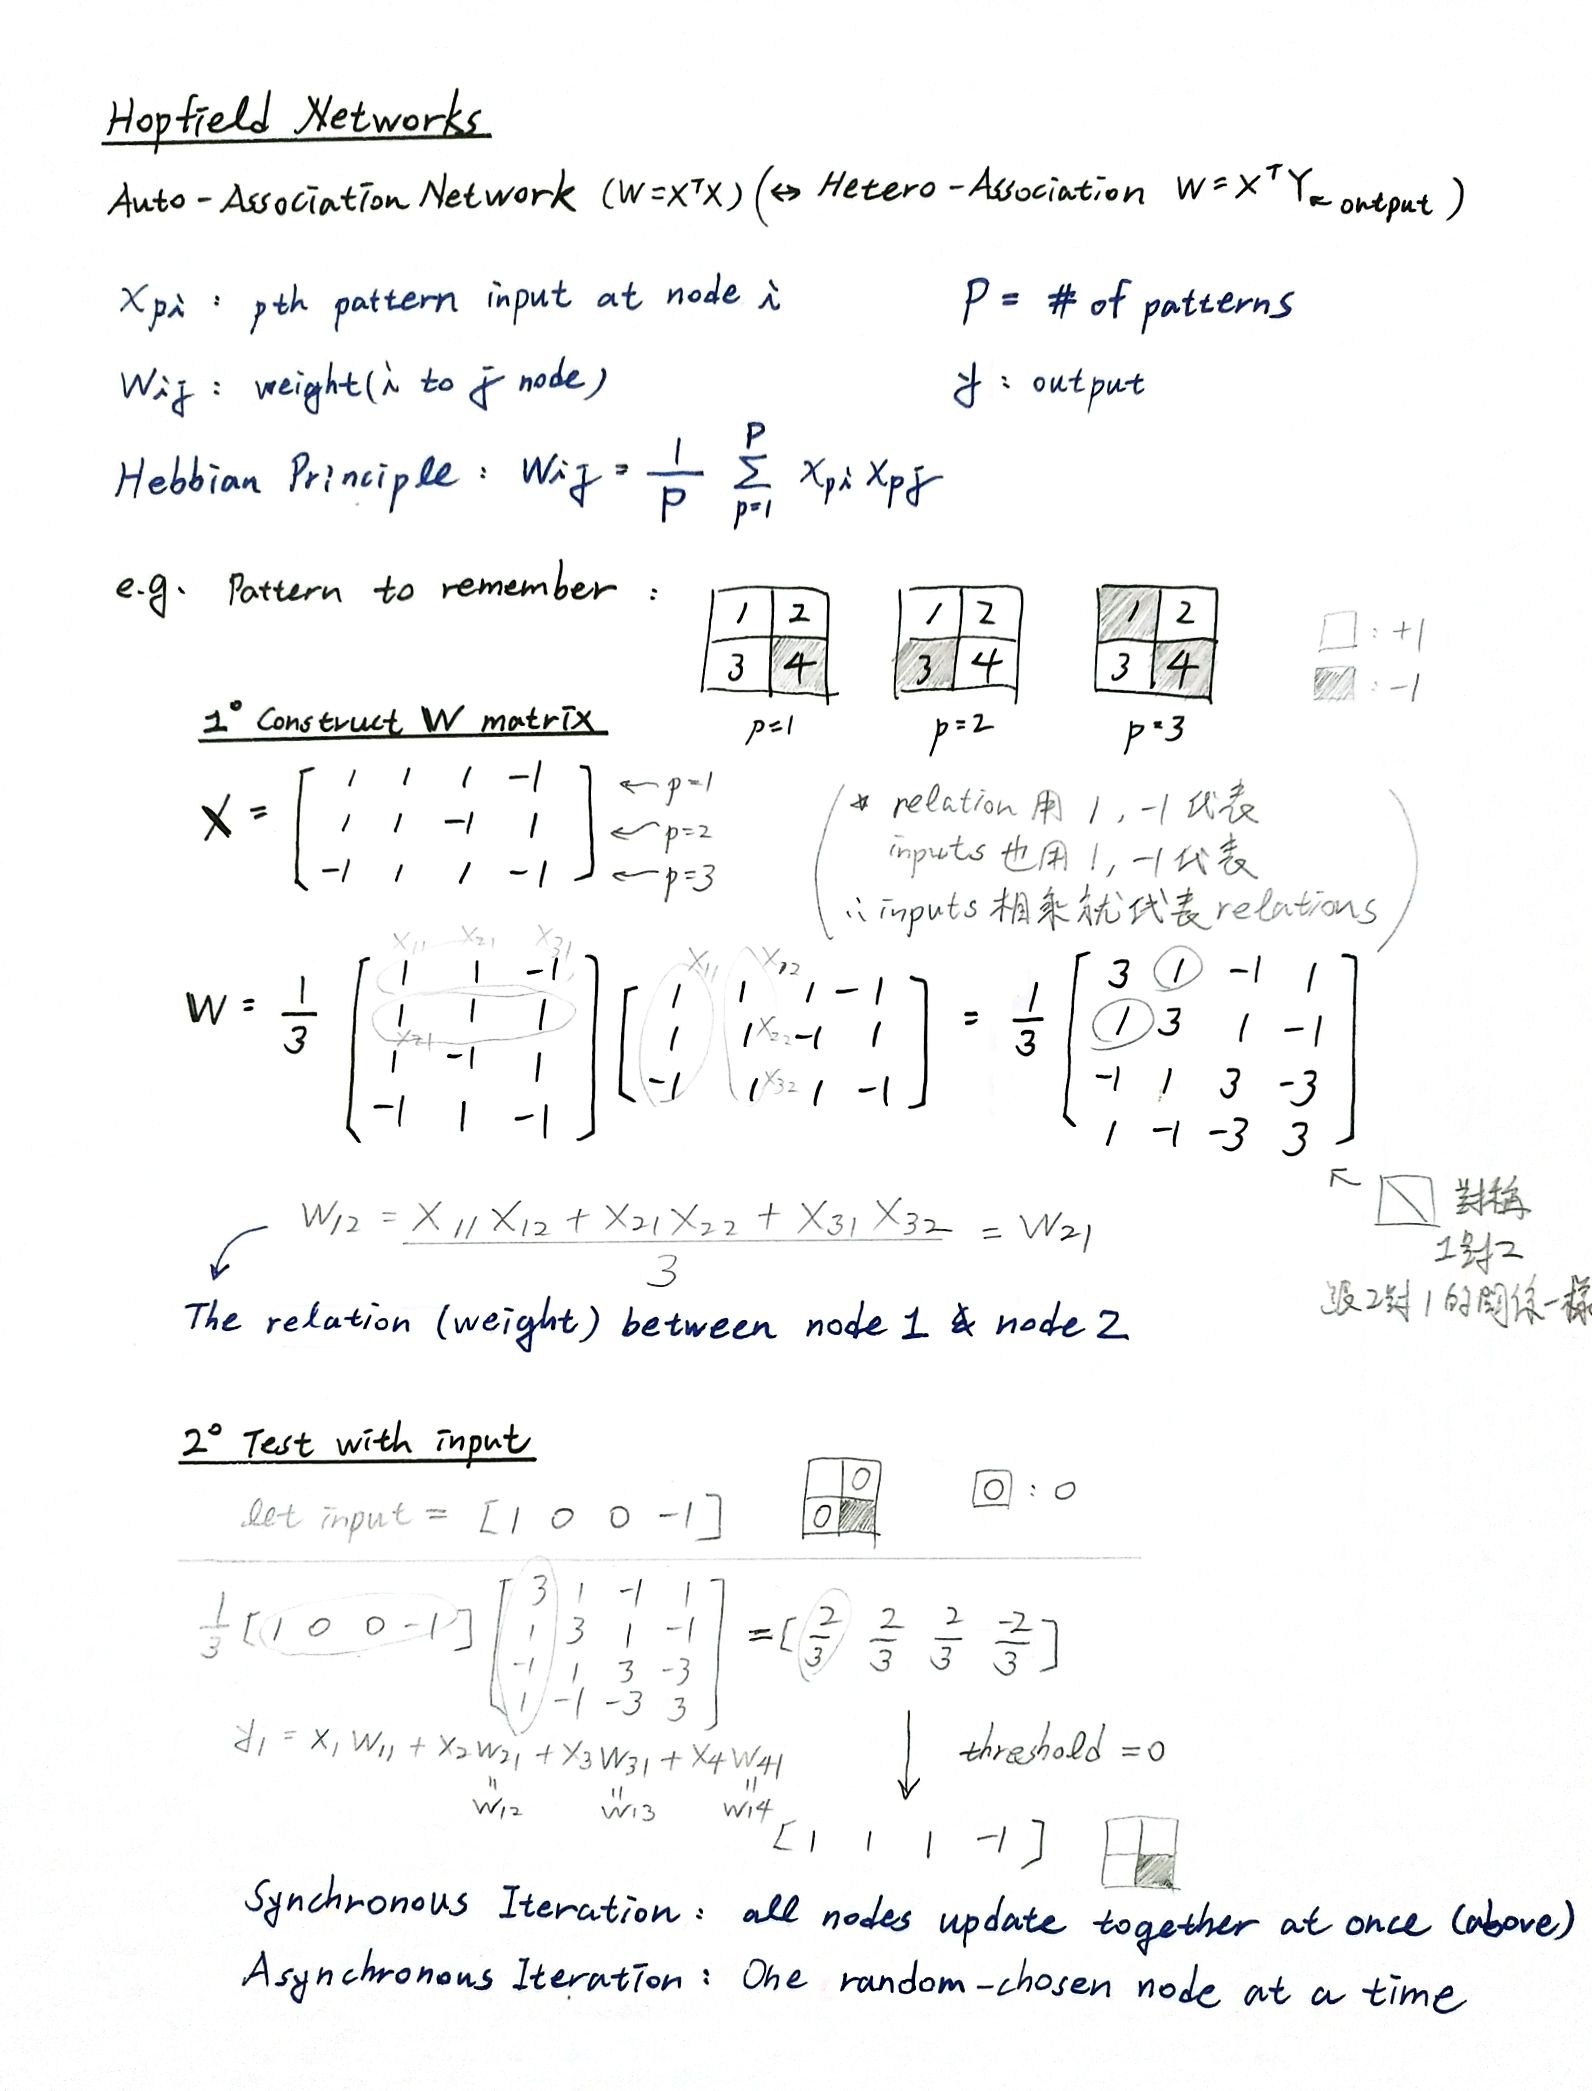 Hopfield Networks
Auto-Association Network (W=XᵀX) (↔ Hetero-Association W=XᵀY ← output)
Xpi : pth pattern input at node i P = # of patterns
Wij : weight(i to j node) y : output
Hebbian Principle : Wij = 1/P Σ(p=1 to P) Xpi Xpj
e.g. Pattern to remember :
1 2 1 2 1 2 □ : +1
3 4 3 4 3 4 ▨ : -1
p=1 p=2 p=3
1° Construct W matrix
X = [ 1 1 1 -1 ← p=1
1 1 -1 1 ← p=2
-1 1 1 -1 ] ← p=3
* relation 用 1, -1 代表
inputs 也用 1, -1 代表
∴ inputs 相乘就代表 relations
X11 X21 X31 X11 X12
W = 1/3 [ 1 1 -1 ] [ 1 1 1 -1 ] = 1/3 [ 3 1 -1 1 ]
[ 1 1 1 ] [ 1 1 X22 -1 1 ] [ 1 3 1 -1 ]
X21
[ 1 -1 1 ] [ -1 1 X32 1 -1 ] [ -1 1 3 -3 ]
[ -1 1 -1 ] [ 1 -1 -3 3 ]
↖ 對稱
1對2
跟2對1的關係一樣
W12 = (X11 X12 + X21 X22 + X31 X32) / 3 = W21
The relation (weight) between node 1 & node 2
2° Test with input
let input = [1 0 0 -1] 0 0 0 : 0
1/3 [1 0 0 -1] [ 3 1 -1 1 ] = [ 2/3 2/3 2/3 -2/3 ]
[ 1 3 1 -1 ]
[ -1 1 3 -3 ]
[ 1 -1 -3 3 ]
y1 = X1 W11 + X2 W21 + X3 W31 + X4 W41
" W12 " W13 " W14
↓ threshold = 0
[ 1 1 1 -1 ]
Synchronous Iteration : all nodes update together at once (above)
Asynchronous Iteration : One random-chosen node at a time